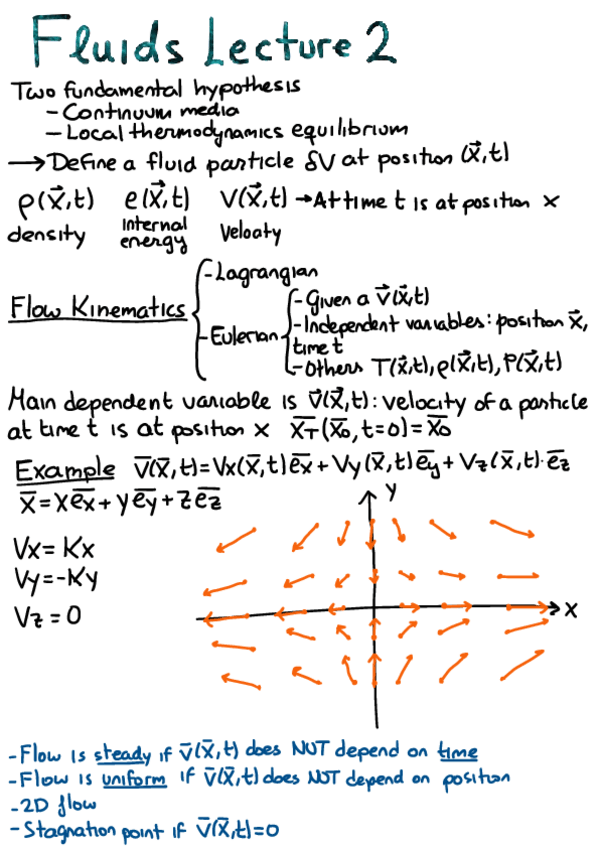 Fluids Lecture 2
Two fundamental hypothesis
- Continuum media
- Local thermodynamics equilibrium
→ Define a fluid particle δV at position (x⃗,t)
ρ(x⃗,t) e(x⃗,t) V(x⃗,t) → At time t is at position x
density Internal energy Velocity
Flow Kinematics
- Lagrangian
- Eulerian
- Given a v⃗(x⃗,t)
- Independent variables: position x⃗,
time t
- Others T(x⃗,t), ρ(x⃗,t), P(x⃗,t)
Main dependent variable is v⃗(x⃗,t): velocity of a particle
at time t is at position x X̅T(X̅0, t=0) = X̅0
Example V̅(x̅,t) = Vx(x̅,t)e̅x + Vy(x̅,t)e̅y + Vz(x̅,t)·e̅z
x̅ = xe̅x + ye̅y + ze̅z
y
Vx = Kx
Vy = -Ky
Vz = 0
x
- Flow is steady if v̅(x̅,t) does NOT depend on time
- Flow is uniform if v̅(x̅,t) does NOT depend on position
- 2D flow
- Stagnation point if v̅(x̅,t) = 0